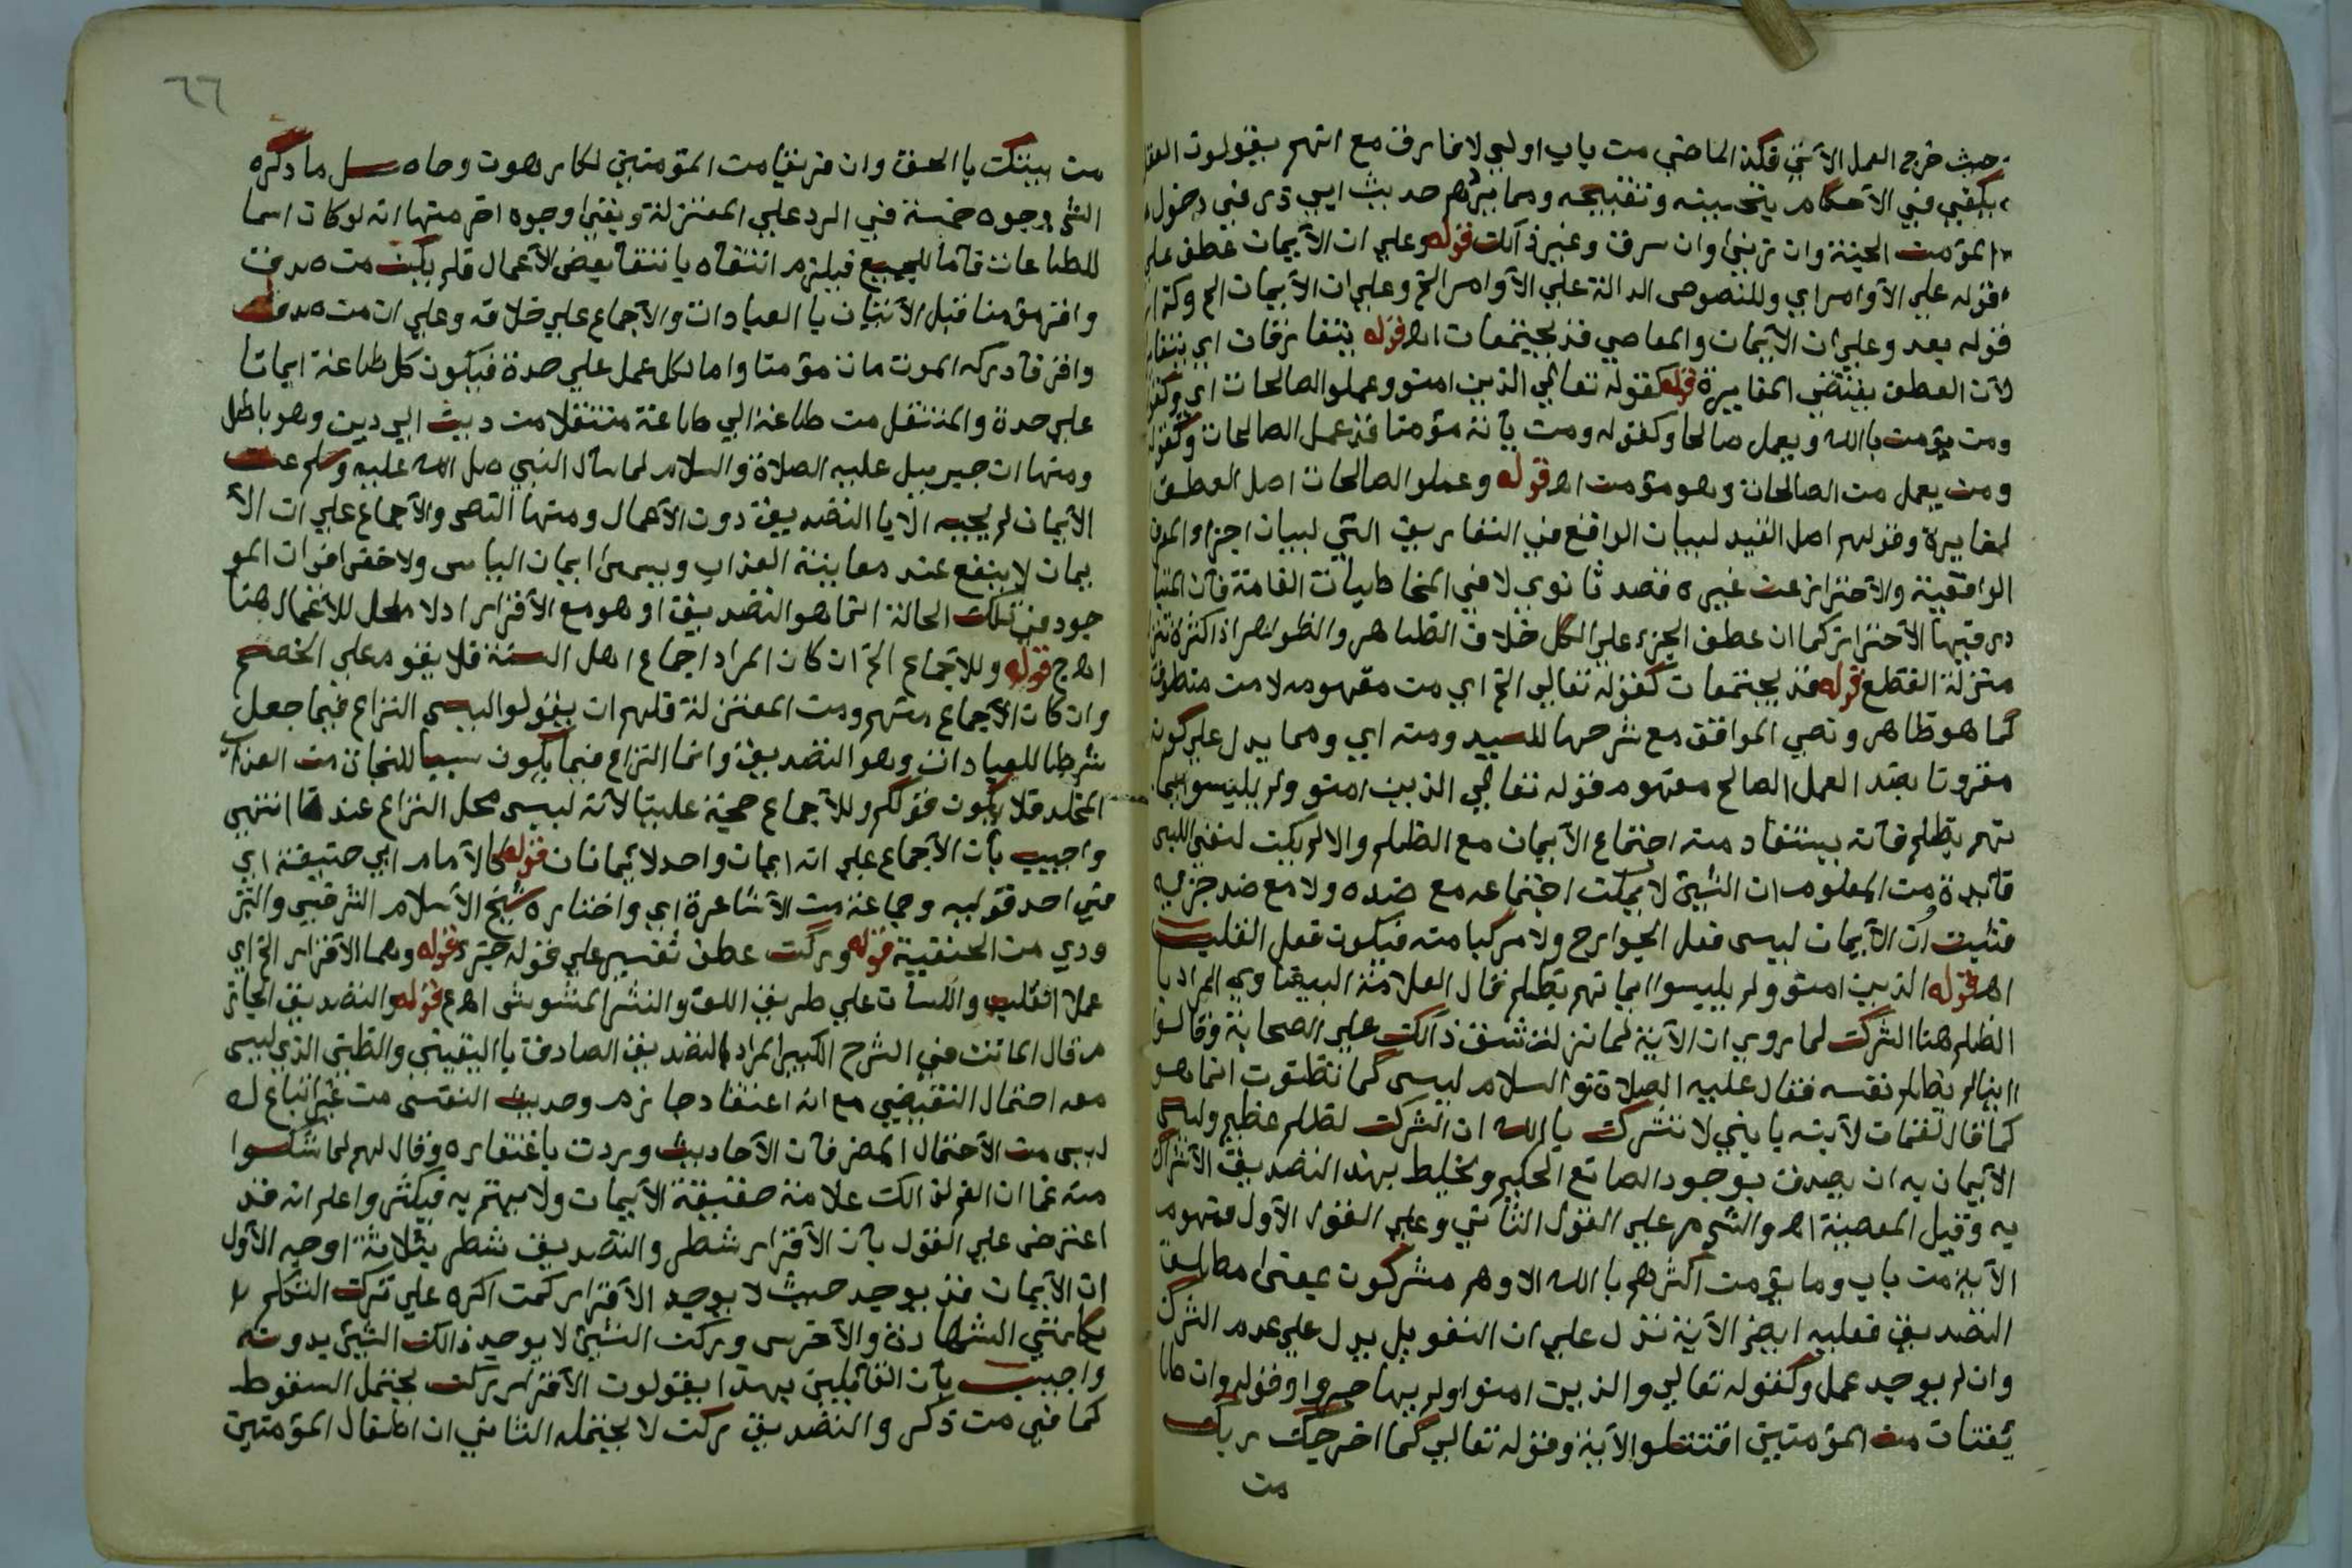 حيث خرج العمل الآتي فكذا الماضي من باب اولي لا فارق مع انهم يقولون العقل
يكفي في الأحكام بتحسينه وتقبيحه ومما يردهم حديث ابي ذر في دخول
المؤمن الجنة وان زني وان سرق وغير ذالك قوله وعلي ان الأيمان عطف علي
قوله علي الأوامر اي وللنصوص الدالة علي الأوامر الخ وعلي ان الأيمان الخ وكذا
قوله بعد وعلي ان الأيمان والمعاصي قد يجتمعان اه قوله يتفارقان اي
لأن العطف يقتضي المغايرة قوله كقوله تعالي الذين امنو وعملو الصالحات اي وكقوله
ومن يؤمن بالله ويعمل صالحا وكقوله ومن يأته مؤمنا قد عمل الصالحات وكقوله
ومن يعمل من الصالحات وهو مؤمن اه قوله وعملو الصالحات اصل العطف
المغايرة وقولهم اصل القيد لبيان الواقع في التعاريف التي لبيان اجزاء
الواقعية والأحتراز عن غيره قصد ثانوي لا في المخاطبات العامة فان المتبا
در فيها الأحتراز كما ان عطف الجزء علي الكل خلاف الظاهر والظواهر اذا كثرة تنزل
منزلة القطع قوله قد يجتمعان كقوله تعالي الخ اي من مفهومه لا من منطوقه
كما هو ظاهر ونص المواقف مع شرحها للسيد ومنه اي ومما يدل علي كونه
مقرونا بضد العمل الصالح مفهوم قوله تعالي الذين امنو ولم يلبسوا ايما
نهم بظلم فانه يستفاد منه اجتماع الأيمان مع الظلم والا لم يكن لنفي اللبس
فائدة من المعلوم ان الشيئ لا يمكن اجتماعه مع ضده ولا مع ضد جزيه
فثبت ان الأيمان ليس فعل الجوارح ولا مركبا منه فيكون فعل القلب
اه قوله الذين امنو ولم يلبسوا ايمانهم بظلم قال العلامة البيضاوي المراد با
الظلم هنا الشرك لما روي ان الأية لما نزلت شق ذالك علي الصحابة وقالو
اينا لم يظلم نفسه فقال عليه الصلاة والسلام ليس كما تظنون انما هو
كما قال لقمان لأبنه يا بني لا تشرك بالله ان الشرك لظلم عظيم وليس
الأيمان به ان يصدق بوجود الصانع الحكيم ويخلط بهذا التصديق الأشراك
به وقيل المعصية اه والشرع علي القول الثاني وعلي القول الأول فمفهوم
الأية من باب وما يؤمن اكثرهم بالله الا وهم مشركون بمعني مطلق
التصديق فعليه ايضا الأية تدل علي ان التفو يل يدل علي عدم الشرك
وان لم يوجد عمل وكقوله تعالي والذين امنوا ولم يهاجروا وقوله وان طا
ئفتان من المؤمنين اقتتلو الأية وقوله تعالي كما اخرجك ربك
من
٦٦
من بيتك با الحق وان فريقا من المؤمنين لكارهون وحاصل ما ذكره
الشي وجوه خمسة في الرد علي المعتزلة وبقي وجوه اخر منها انه لو كان اسما
للطاعات فاما للجميع فيلزم انتفاه با نتفا بعض الأعمال فلم يكن من صدق
واقر مؤمنا قبل الأتيان با العبادات والأجماع علي خلافه وعلي ان من صدق
واقر فادركه الموت مات مؤمنا واما لكل عمل علي حدة فيكون كل طاعة ايمانا
علي حدة والمنتقل من طاعة الي طاعة منتقلا من دين الي دين وهو باطل
ومنها ان جبريل عليه الصلاة والسلام لما سأل النبي صل الله عليه وسلم عن
الأيمان لم يجبه الا با التصديق دون الأعمال ومنها النص والأجماع علي ان الأ
يمان لا ينفع عند معاينة العذاب ويسمي ايمان الياس ولا خفي في ان المو
جود في تلك الحالة انما هو التصديق او هو مع الأقرار اذ لا محل للأعمال هنا
اه ج قوله وللأجماع الخ ان كان المراد اجماع اهل السنة فلا يقوم علي الخصم
وان كان الأجماع منهم ومن المعتزلة فلهم ان يقولو اليس النزاع فيما جعل
شرطا للعبادات وهو التصديق وانما النزاع فيما يكون سببا للنجاة من العذاب
المخلد فلا يكون قولكم وللأجماع حجة علينا لأنه ليس محل النزاع عندنا انتهي
واجيب بأن الأجماع علي انه ايمان واحد لا ايمانان قوله كالأمام ابي حنيفة اي
في احد قوليه وجماعة من الأشاعرة اي واختاره شيخ الأسلام الشرقيي والتر
ودي من الحنفية قوله وركن عطف تفسير علي قوله جزء قوله وهما الأقرار الخ اي
عملا القلب واللسان علي طريق اللف والنشر المشوش اه ع قوله والتصديق الجاز
م قال الماتن في الشرح الكبير المراد بالتصديق الصادق با اليقيني والظني الذي ليس
معه احتمال النقيض مع انه اعتقاد جازم وحديث النفس من غير اتباع له
ليس من الأحتمال المضر فان الأحاديث وردت باغتفاره وقال لهم لما شكوا
منه غما ان الغم لذالك علامة حقيقة الأيمان ولا يهتم به فيكثر واعلم انه قد
اعترض علي القول بأن الأقرار شطر والتصديق شطر بثلاثة اوجه الأول
ان الأيمان قد يوجد حيث لا يوجد الأقرار كمن اكره علي ترك التكلم
بكلمتي الشهادة والأخرس وركن الشيئ لا يوجد ذالك الشيئ بدونه
واجيب بأن القائلين بهذا يقولون الأقرار ركن يحتمل السقوط
كما في من ذكر والتصديق ركن لا يحتمله الثاني ان اطفال المؤمنين